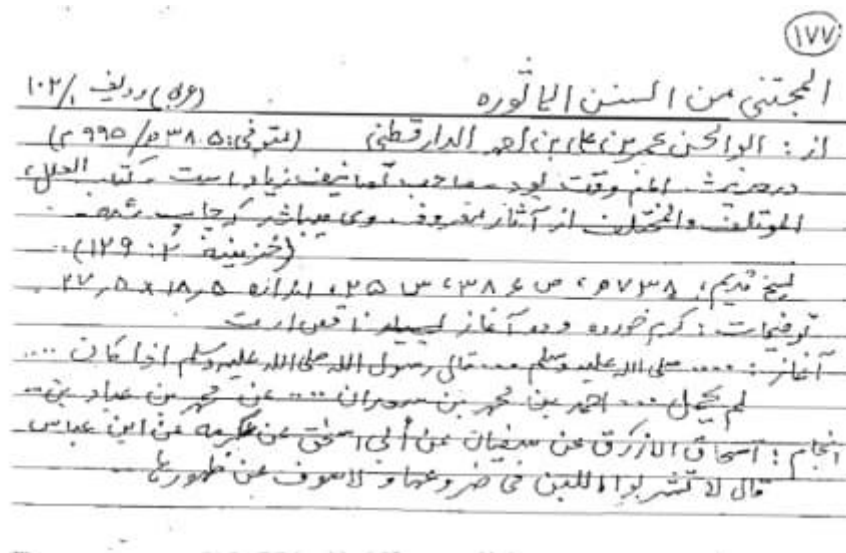 ١٧٧
المجتنی من السنن الماثوره (عربی) ردیف ١٠٢/١
از: ابوالحسن عمر بن علی بن احمد الدارقطنی (متوفی: ٣٨٥ھ/٩٩٥م)
درحدیث امام وقت بود صاحب تصانیف زیاد است کتاب العلل،
الموتلف والمختلف از آثار معروف وی میباشد که چاپ شده.
(خزینة ٢: ١٢٩).
نسخ قدیم، ٧٣٨ھ، ص ٣٨، س ٢٥، اندازه ١٨٫٥ × ٢٧٫٥
توضیحات: کرم خورده و در آغاز ناقص است
آغاز: .... صلی الله علیه وسلم ... قال رسول الله صلی الله علیه وسلم اذا کان ....
لم یحمل ... احمد بن محمد بن ... عن محمد بن عباد بن ..
انجام: اسحاق الازرق عن سفیان عن أبی اسحق عن عکرمه عن ابن عباس
قال لا تشتروا اللبن فی ضروعها ولا الصوف عن ظهورها